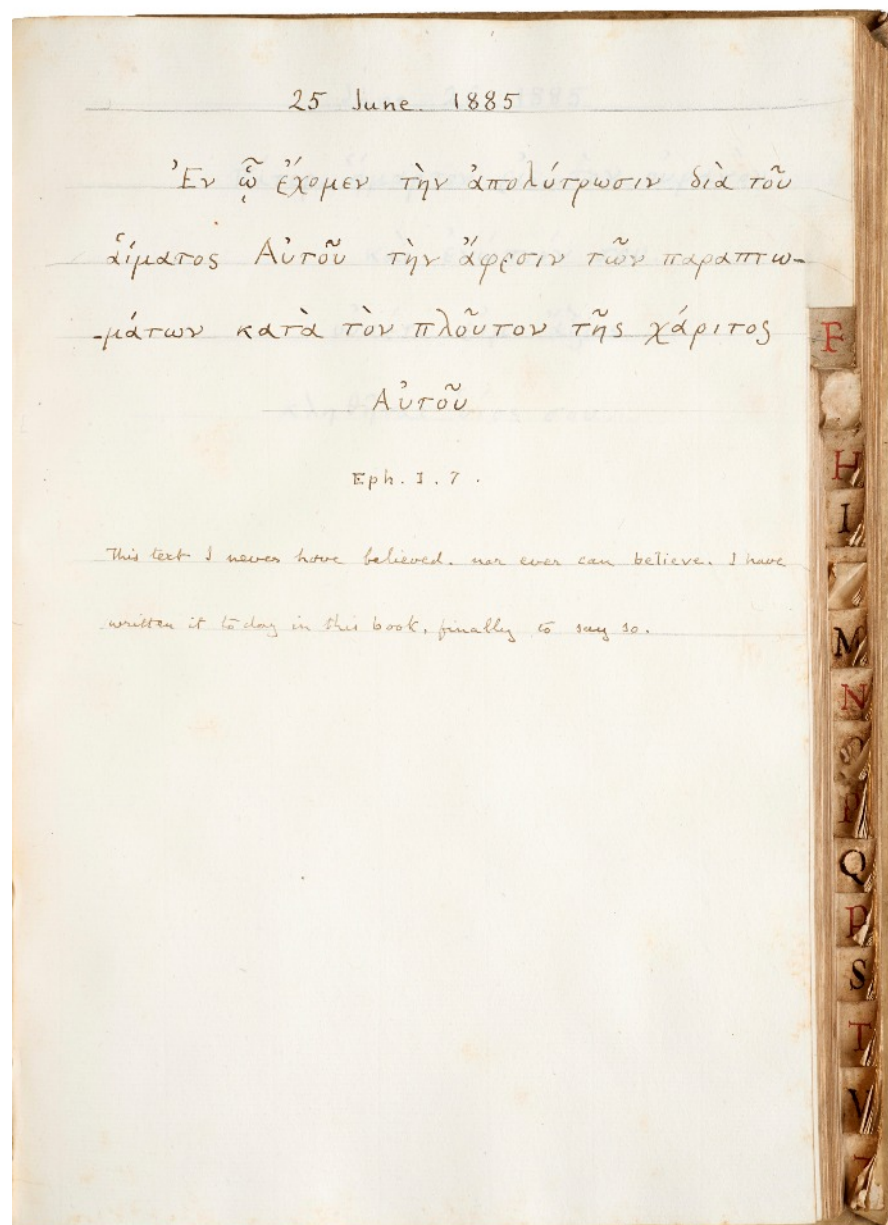 25 June. 1885
Ἐν ᾧ ἔχομεν τὴν ἀπολύτρωσιν διὰ τοῦ
ἅίματος Αὐτοῦ τὴν ἄφεσιν τῶν παραπτω-
-μάτων κατὰ τὸν πλοῦτον τῆς χάριτος
Αὐτοῦ
Eph. I. 7.
This text I never have believed. nor ever can believe. I have
written it today in this book, finally to say so.
F
H
I
M
N
O
P
Q
R
S
T
V